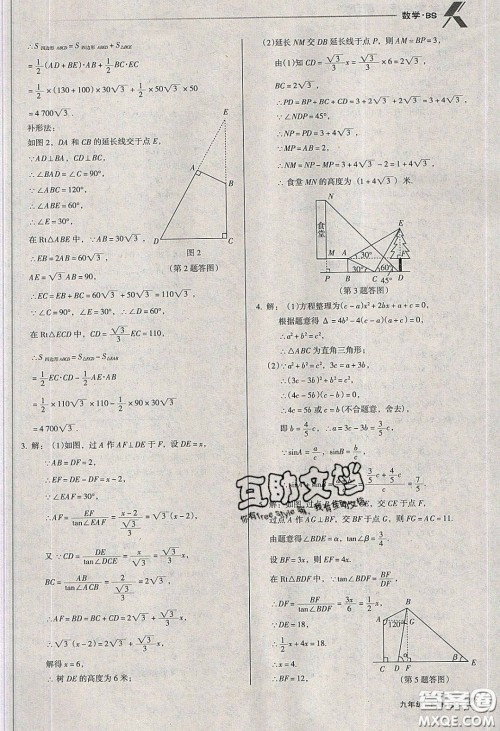 数学·BS
∴S四边形ABCD=S四边形ABED+S△BCE
=1/2(AD+BE)·AB+1/2BC·EC
=1/2×(130+100)×30√3+1/2×50√3×50
=4 700√3.
补形法:
如图2,DA和CB的延长线交于点E,
∵AD⊥AB,CD⊥BC,
∴∠BAD=∠C=90°,
∵∠ABC=120°,
∴∠ABE=60°,
∴∠E=30°,
在Rt△ABE中,∵AB=30√3,
∴EB=2AB=60√3,
AE=90
图2
(第2题答图)
∴EC=EB+BC=60√3+50√3=110√3,
在Rt△ECD中,CD=√3/3EC=110,
∴S四边形ABCD=S△ECD-S△EAB
=1/2EC·CD-1/2AE·AB
=1/2×110√3×110-1/2×90×30√3
=4 700√3.
3.解:(1)如图,过A作AF⊥DE于F,设DE=x,
∵AB=DF=2,
∴EF=DE-DF=x-2,
∵∠EAF=30°,
∴AF=EF/tan∠EAF=(x-2)/(√3/3)=√3(x-2),
又∵CD=DE/tan∠DCE=x/√3=√3/3x,
BC=AB/tan∠ACB=2/(√3/3)=2√3,
∴AF=BD=BC+CD=2√3+√3/3x
∴√3(x-2)=2√3+√3/3x
解得x=6,
∴树DE的高度为6米;
(2)延长NM交DB延长线于点P,则AM=BP=3,
由(1)知CD=√3/3x=√3/3×6=2√3,
BC=2√3,
∴PD=BP+BC+CD=3+2√3+2√3=3+4√3,
∵∠NDP=45°,
∴NP=PD=3+4√3,
∵MP=AB=2,
∴NM=NP-MP=3+4√3-2=1+4√3,
∴食堂MN的高度为(1+4√3)米.
(第3题答图)
4.解:(1)方程整理为(c-a)x²+2bx+a+c=0,
根据题意得Δ=4b²-4(c-a)(a+c)=0,
∴a²+b²=c²,
∴△ABC为直角三角形;
(2)∵a²+b²=c²,
∴(3c-3b)²+b²=c²,
∴(4c-5b)(c-b)=0,
∴4c-5b=0或c-b=0(不符合题意,舍去),
即b=4/5c,
∵sinA=a/c,sinB=b/c,
互助文档
过点A作AG⊥BF,交BF于点G,则FG=AC=11.
由题意得∠BDE=α,tan∠β=3/4.
设BF=3x,则EF=4x.
在Rt△BDF中,∵tan∠BDF=BF/DF,
∴DF=BF/tan∠BDF=3x/6=1/2x,
∵DE=18,
∴1/2x+4x=18.
∴x=4.
∴BF=12,
(第5题答图)